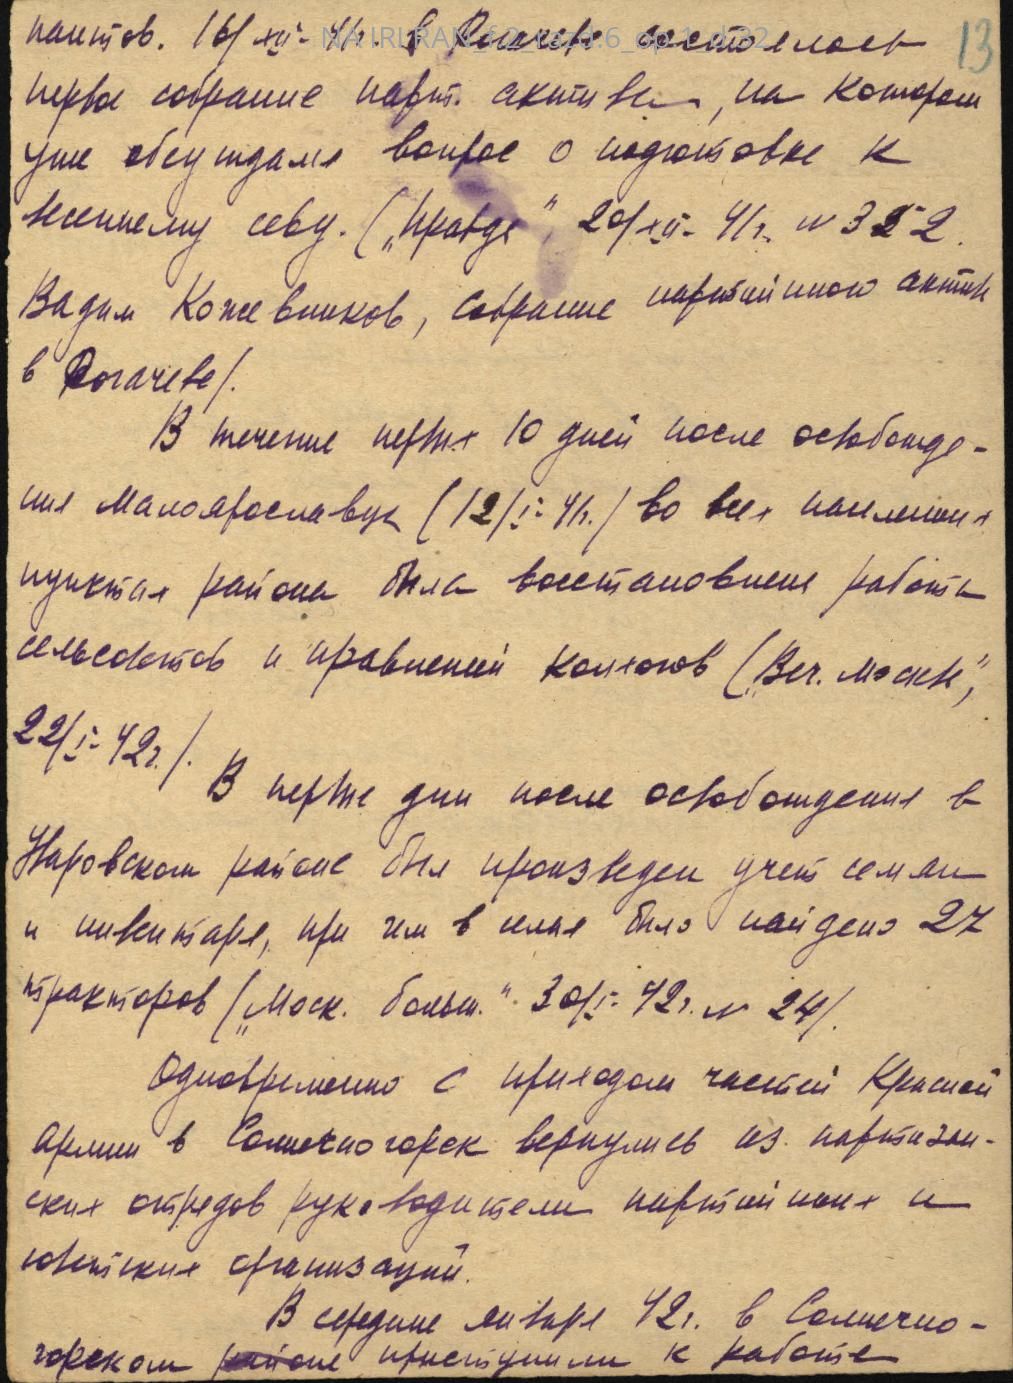 пантов. 16/XII-41г. в Рогачеве состоялось 13
NA IRI RAN f.2 razd.6_op.1_d.32
первое собрание парт. актива, на котором
уже обсуждался вопрос о подготовке к
весеннему севу. („Правда", 20/XII-41г. N 352.
Вадим Кожевников, Собрание партийного актива
в Рогачеве/.
В течение первых 10 дней после освобожде-
ния Малоярославца (12/I-41г./ во всех населенных
пунктах района была восстановлена работа
сельсоветов и правлений колхозов („Веч. Москва",
22/I-42г./.
В первые дни после освобождения в
Наровском районе был произведен учет семян
и инвентаря, при чем в селах было найдено 27
тракторов („Моск. больш." 30/I-42г. N 24/.
Одновременно с приходом частей Красной
армии в Солнечногорск вернулись из партизан-
ских отрядов руководители партийных и
советских организаций.
В середине января 42г. в Солнечно-
горском районе приступили к работе